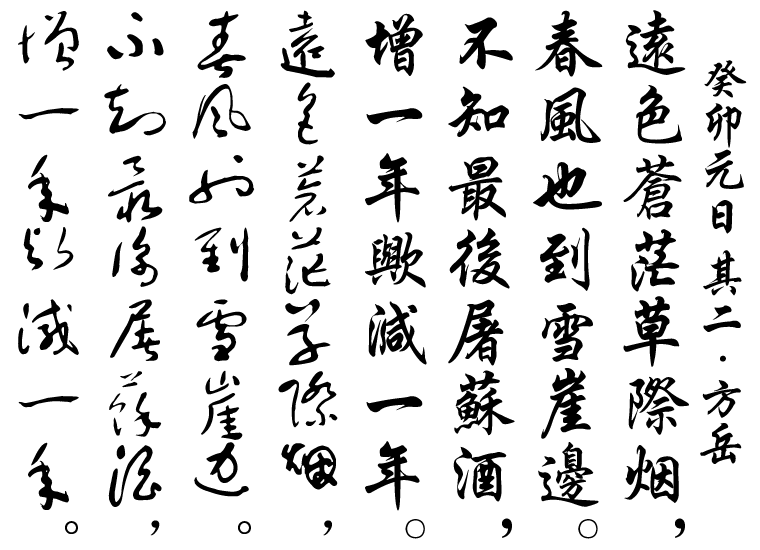 癸卯元日 其二·方岳
遠色蒼茫草際烟，
春風也到雪崖邊。
不知最後屠蘇酒，
增一年歟減一年。
遠色蒼茫草際烟，
春風也到雪崖邊。
不知最後屠蘇酒，
增一年歟減一年。